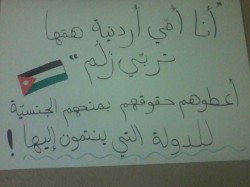 "أنا أمي أردنية همها
تربّي زلم"
أعطوهم حقوقهم بمنحهم الجنسيّة
للدولة التي ينتمون إليها!